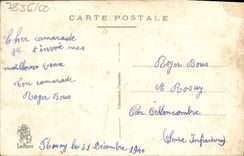 7856/00
CARTE POSTALE
Cher camarade
je t'envoie mes
meilleurs veux
Ton camarade
Roger Bous
Roger Bous
A Rosay
Par Bellencombre
(Seine Inférieure)
Rosay le 31 Décembre 1940